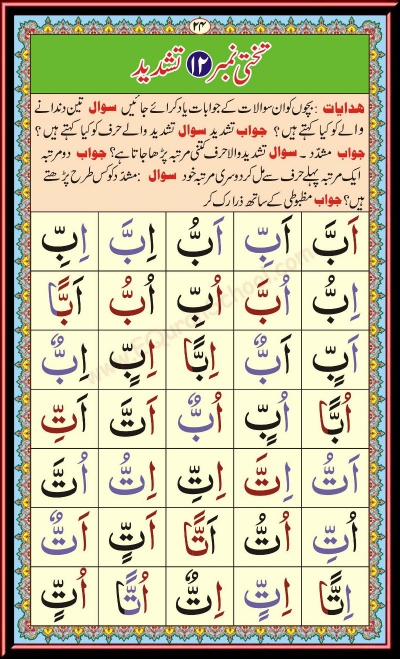 ۲۴
تختی نمبر ۱۲ تشدید
ھدایات : بچوں کو ان سوالات کے جوابات یاد کرائے جائیں سوال تین دندانے
والے کو کیا کہتے ہیں؟ جواب تشدید سوال تشدید والے حرف کو کیا کہتے ہیں؟
جواب مشدّد ۔ سوال تشدید والا حرف کتنی مرتبہ پڑھا جاتا ہے؟ جواب دو مرتبہ
ایک مرتبہ پہلے حرف سے مل کر دوسری مرتبہ خود سوال : مشدّد کو کس طرح پڑھتے
ہیں؟ جواب مظبوطی کے ساتھ ذرا رک کر
اَبَّ اَبِّ اَبُّ اِبَّ اِبِّ
اِبُّ اُبَّ اُبِّ اُبُّ اَبًّا
اَبٍّ اَبٌّ اِبًّا اِبٍّ اِبٌّ
اُبًّا اُبٍّ اُبٌّ اَتَّ اَتِّ
اَتُّ اِتَّ اِتِّ اِتُّ اُتَّ
اُتِّ اُتُّ اَتًّا اَتٍّ اَتٌّ
اِتًّا اِتٍّ اِتٌّ اُتًّا اُتٍّ